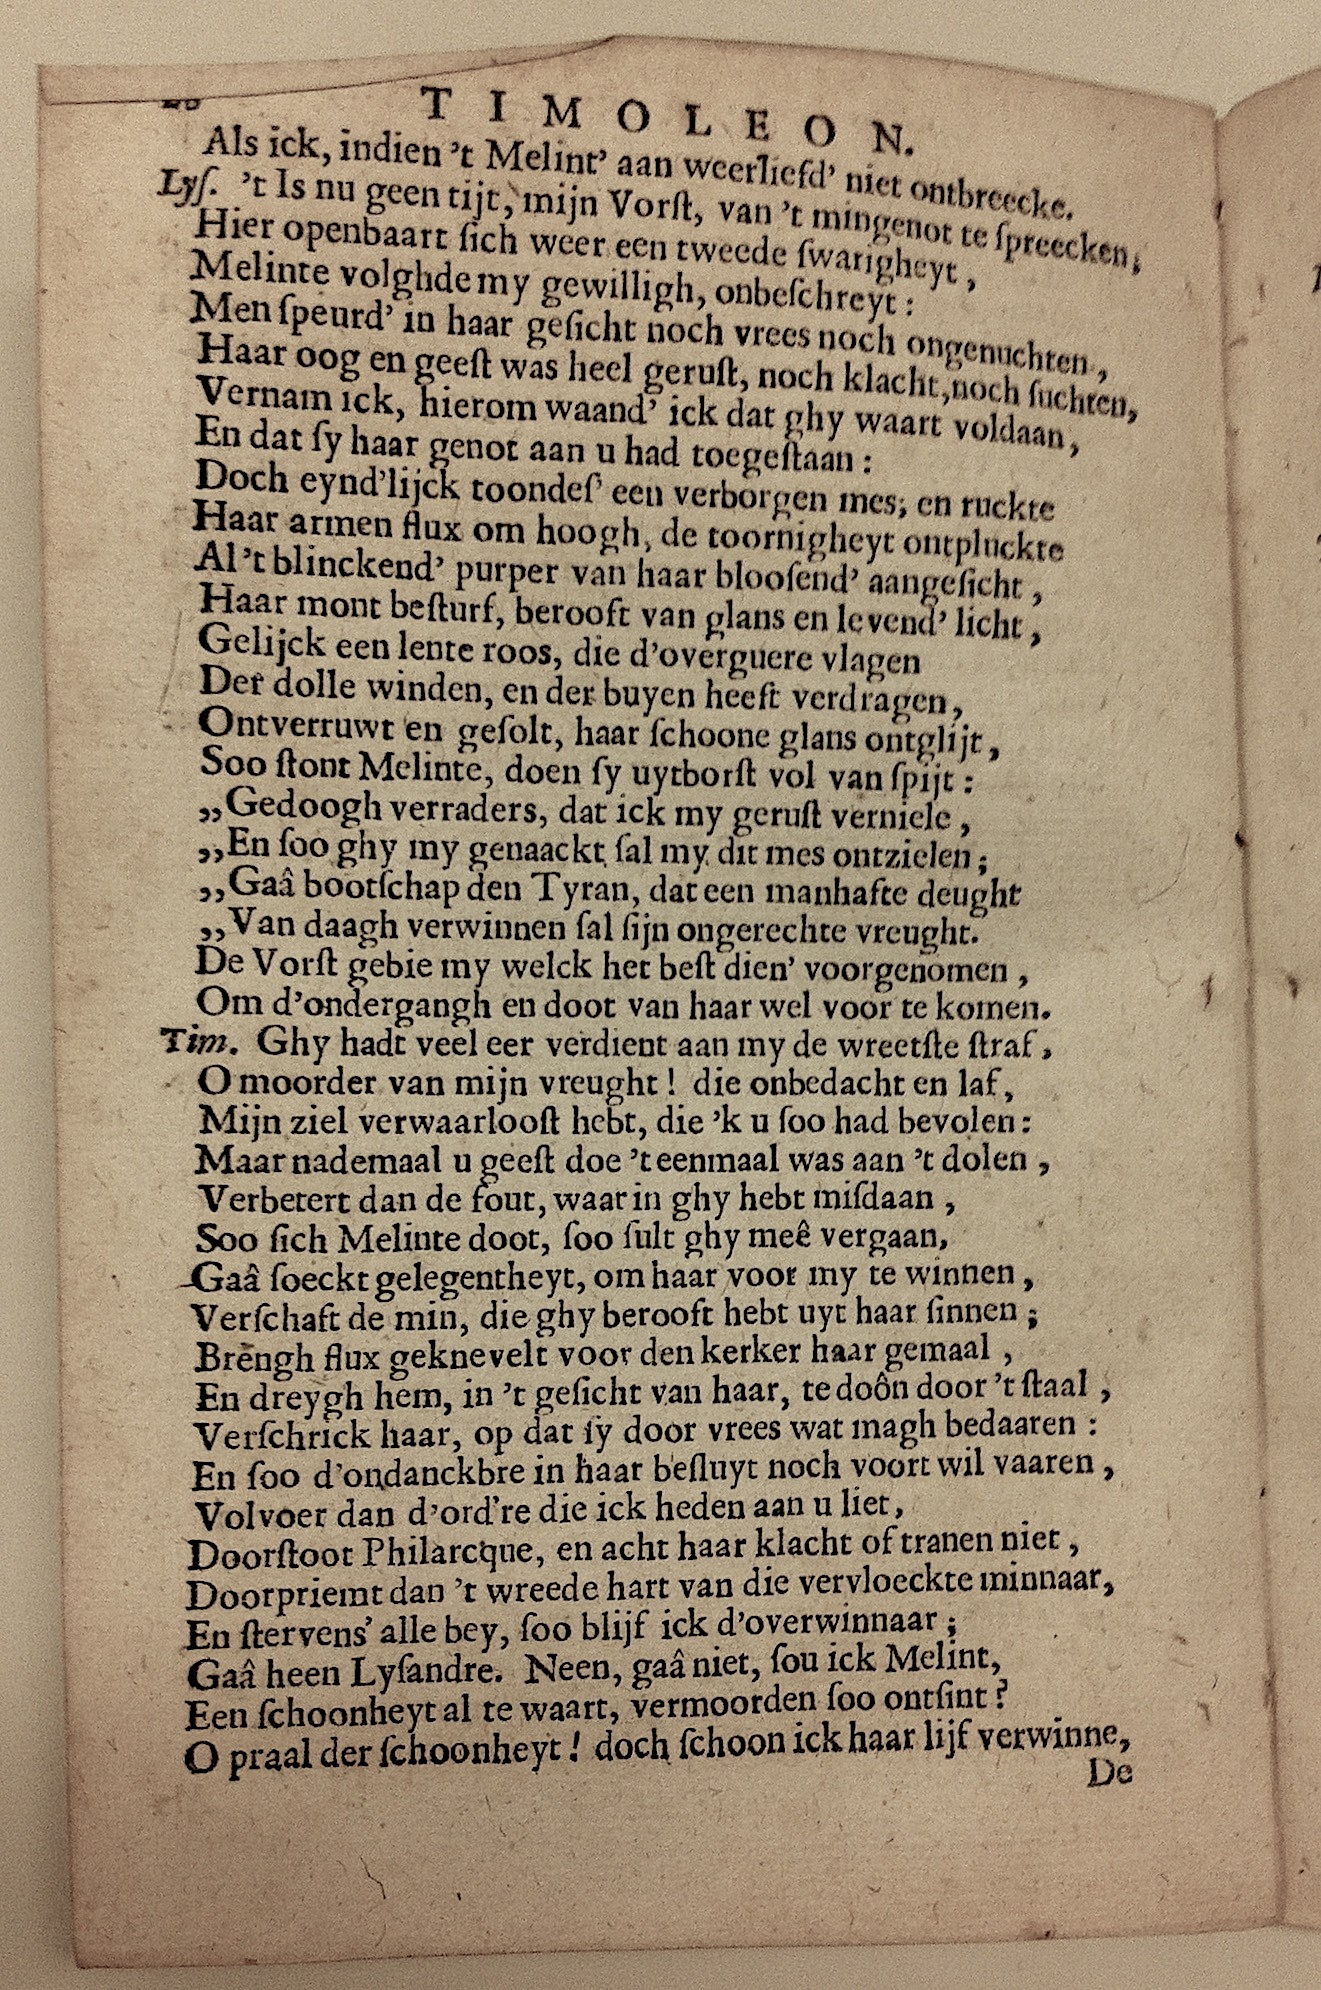 TIMOLEON.
Als ick, indien 't Melint' aan weerliefd' niet ontbreecke.
Lyſ. 't Is nu geen tijt, mijn Vorſt, van 't mingenot te ſpreecken,
Hier openbaart ſich weer een tweede ſwarigheyt,
Melinte volghde my gewilligh, onbeſchreyt:
Men ſpeurd' in haar geſicht noch vrees noch ongenuchten,
Haar oog en geeſt was heel geruſt, noch klacht, noch ſuchten,
Vernam ick, hierom waand' ick dat ghy waart voldaan,
En dat ſy haar genot aan u had toegeſtaan:
Doch eynd'lijck toondeſ' een verborgen mes; en ruckte
Haar armen flux om hoogh, de toornigheyt ontpluckte
Al 't blinckend' purper van haar blooſend' aangeſicht,
Haar mont beſturf, berooft van glans en levend' licht,
Gelijck een lente roos, die d'overguere vlagen
Der dolle winden, en der buyen heeft verdragen,
Ontverruwt en geſolt, haar ſchoone glans ontglijt,
Soo ſtont Melinte, doen ſy uytborſt vol van ſpijt:
„Gedoogh verraders, dat ick my geruſt verniele,
„En ſoo ghy my genaackt ſal my dit mes ontzielen;
„Gaâ bootſchap den Tyran, dat een manhafte deught
„Van daagh verwinnen ſal ſijn ongerechte vreught.
De Vorſt gebie my welck het beſt dien' voorgenomen,
Om d'ondergangh en doot van haar wel voor te komen.
Tim. Ghy hadt veel eer verdient aan my de wreetſte ſtraf,
O moorder van mijn vreught! die onbedacht en laf,
Mijn ziel verwaarlooſt hebt, die 'k u ſoo had bevolen:
Maar nademaal u geeſt doe 't eenmaal was aan 't dolen,
Verbetert dan de fout, waar in ghy hebt miſdaan,
Soo ſich Melinte doot, ſoo ſult ghy meê vergaan,
Gaâ ſoeckt gelegentheyt, om haar voor my te winnen,
Verſchaft de min, die ghy berooft hebt uyt haar ſinnen;
Brengh flux geknevelt voor den kerker haar gemaal,
En dreygh hem, in 't geſicht van haar, te doôn door 't ſtaal,
Verſchrick haar, op dat ſy door vrees wat magh bedaaren:
En ſoo d'ondanckbre in haar beſluyt noch voort wil vaaren,
Volvoer dan d'ord're die ick heden aan u liet,
Doorſtoot Philarcque, en acht haar klacht of tranen niet,
Doorpriemt dan 't wreede hart van die vervloeckte minnaar,
En ſtervenſ' alle bey, ſoo blijf ick d'overwinnaar;
Gaâ heen Lyſandre. Neen, gaâ niet, ſou ick Melint,
Een ſchoonheyt al te waart, vermoorden ſoo ontſint?
O praal der ſchoonheyt! doch ſchoon ick haar lijf verwinne,
De